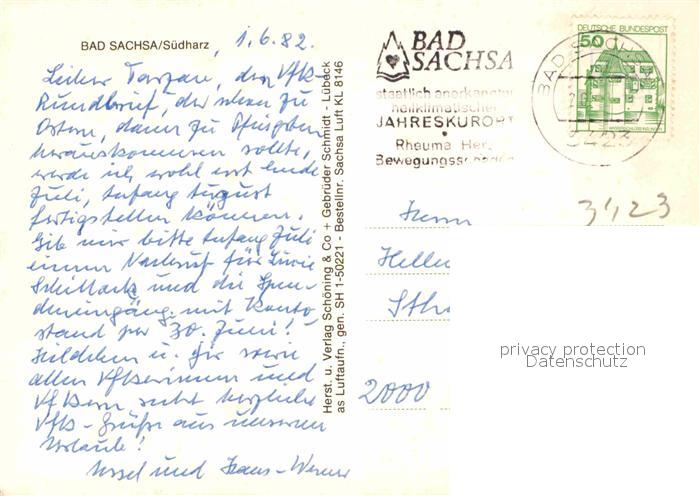 BAD SACHSA/Südharz, 1.6.82.
Lieber Tarzan, den VfK-
Rundbrief, der schon zu
Ostern, dann zu Pfingsten
herauskommen sollte,
werde ich wohl erst Ende
Juli, Anfang August
fertigstellen können.
Gib mir bitte Anfang Juli
einen Nachruf für
und die Spen-
deneingänge mit Konto-
stand per 30. Juni!
Dir sowie
allen VfKerinnen und
VfKern herzliche
VfK-Grüße aus unserem
Urlaub!
Ursel und Hans-Werner
Herst. u. Verlag Schöning & Co + Gebrüder Schmidt - Lübeck
as Luftaufn., gen. SH 1-50221 - Bestellnr. Sachsa Luft KL 8146
BAD
SACHSA
staatlich anerkannter
heilklimatischer
JAHRESKURORT
Rheuma Herz
DEUTSCHE BUNDESPOST
50
BAD SACHSA
3423
Herrn
3423
2000
privacy protection
Datenschutz